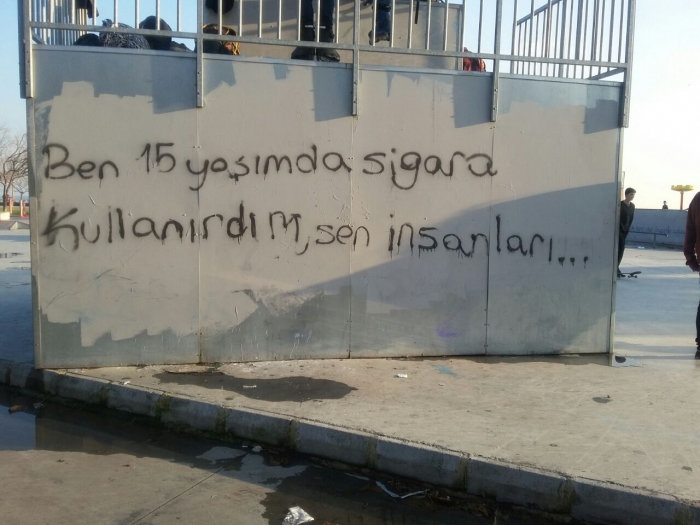 Ben 15 yaşımda sigara
Kullanırdım, sen insanları...